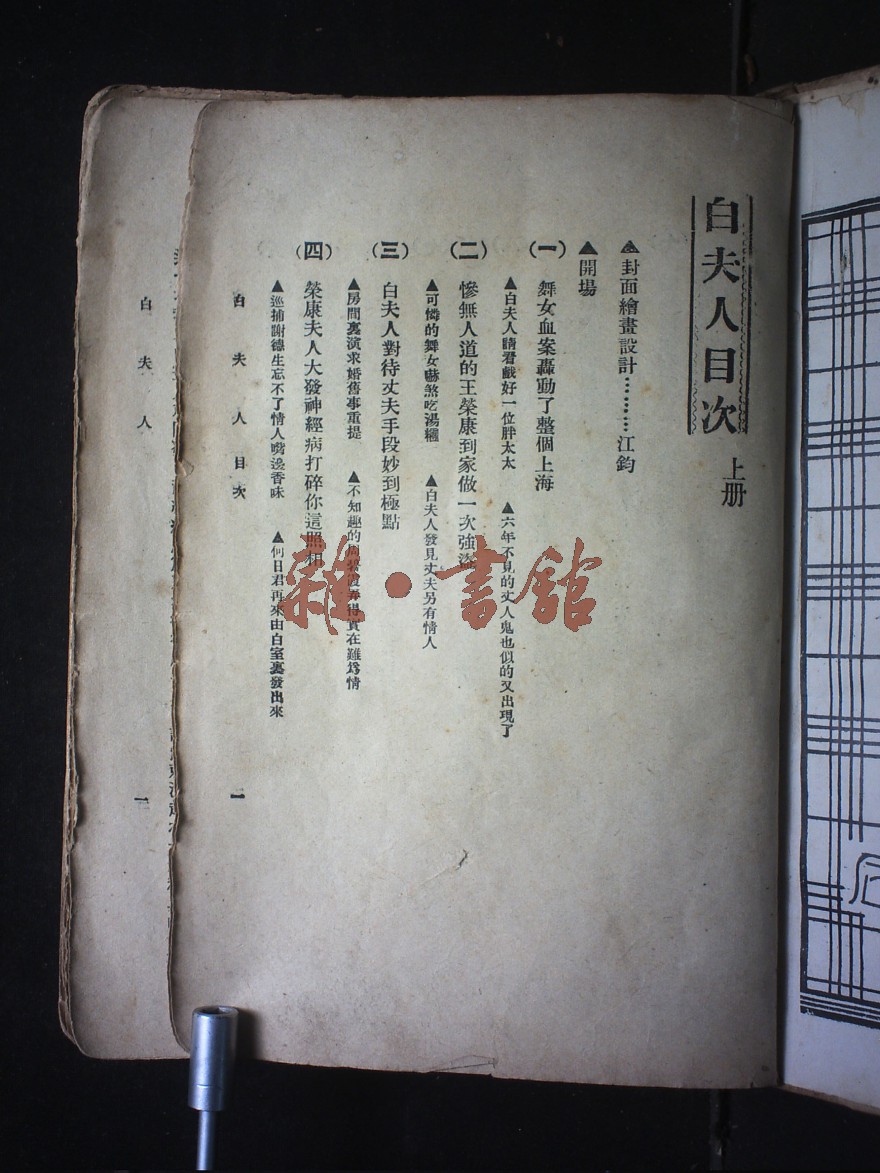 白夫人目次 上册
▲封面繪畫設計………江鈞
▲開場
(一) 舞女血案轟動了整個上海
▲白夫人請看戲好一位胖太太 ▲六年不見的丈人鬼也似的又出現了
(二) 慘無人道的王榮康到家做一次強盜
▲可憐的舞女嚇煞吃湯糰 ▲白夫人發見丈夫另有情人
(三) 白夫人對待丈夫手段妙到極點
▲房間裏演求婚舊事重提 ▲不知趣的周 弄得實在難爲情
(四) 榮康夫人大發神經病打碎你這照相
▲巡捕謝德生忘不了情人嘴邊香味 ▲何日君再來由白室裏發出來
白夫人目次 一
白夫人 一
雜·書館